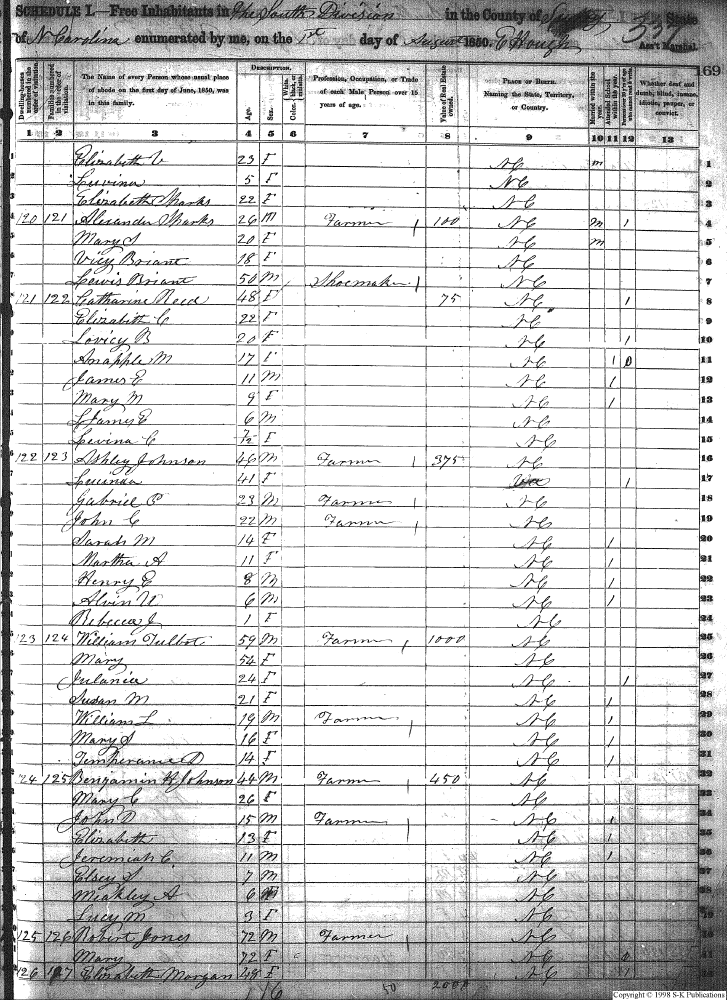 SCHEDULE I. Free Inhabitants in The South Division in the County of State
of N Carolina enumerated by me, on the 1st day of August 1850. E Hough Ass't Marshal.
337
169
Dwelling-houses numbered in the order of visitation.
Families numbered in the order of visitation.
The Name of every Person whose usual place of abode on the first day of June, 1850, was in this family.
DESCRIPTION.
Age.
Sex.
Color, White, black, or mulatto.
Profession, Occupation, or Trade of each Male Person over 15 years of age.
Value of Real Estate owned.
PLACE OF BIRTH. Naming the State, Territory, or Country.
Married within the year.
Attended School within the year.
Whether deaf and dumb, blind, insane, idiotic, pauper, or convict.
1 2 3 4 5 6 7 8 9 10 11 12 13
1 Elizabeth V 23 F NC m 1
2 Luvina 5 F NC 2
3 Elizabeth Sparks 22 F NC 3
4 120 121 Alexander Sparks 26 M Farmer 100 NC m 1 4
5 Mary S 20 F NC m 5
6 Vicy Briant 18 F NC 6
7 Lewis Briant 50 M Shoemaker NC 7
8 121 122 Catharine Reed 48 F 75 NC 1 8
9 Elizabeth C 22 F NC 9
10 Lovicy B 20 F NC 1 10
11 Anapple M 17 F NC 1 0 11
12 James E 11 M NC 1 12
13 Mary M 9 F NC 1 13
14 6 M NC 14
15 Levina C 7/12 F NC 15
16 122 123 Ashley Johnson 46 M Farmer 375 NC 16
17 Lucinda 41 F 1 17
18 Gabriel P 23 M Farmer NC 18
19 John C 22 M Farmer NC 19
20 Sarah M 14 F NC 1 20
21 Martha A 11 F NC 1 21
22 Henry E 8 M NC 1 22
23 Alvin U 6 M NC 1 23
24 Rebecca J 1 F NC 24
25 123 124 William Tulbot 59 M Farmer 1000 NC 25
26 Mary 54 F NC 26
27 Julania 24 F NC 1 27
28 Susan M 21 F NC 1 28
29 William L 19 M Farmer NC 1 29
30 Mary S 16 F NC 1 30
31 Temperance D 14 F NC 1 31
32 124 125 Benjamin H Johnson 44 M Farmer 450 NC 32
33 Mary C 26 F NC 33
34 John D 15 M Farmer NC 1 34
35 Elizabeth 13 F NC 1 35
36 Jeremiah C 11 M NC 1 36
37 Elsey S 7 M NC 37
38 Meakley A 6 NC 38
39 Lucy M 3 F NC 39
40 125 126 Robert Jones 72 M Farmer NC 40
41 Mary 72 F NC 0 41
42 126 127 Elizabeth Morgan 48 F NC 42
16 50 2000
Copyright © 1998 S-K Publications